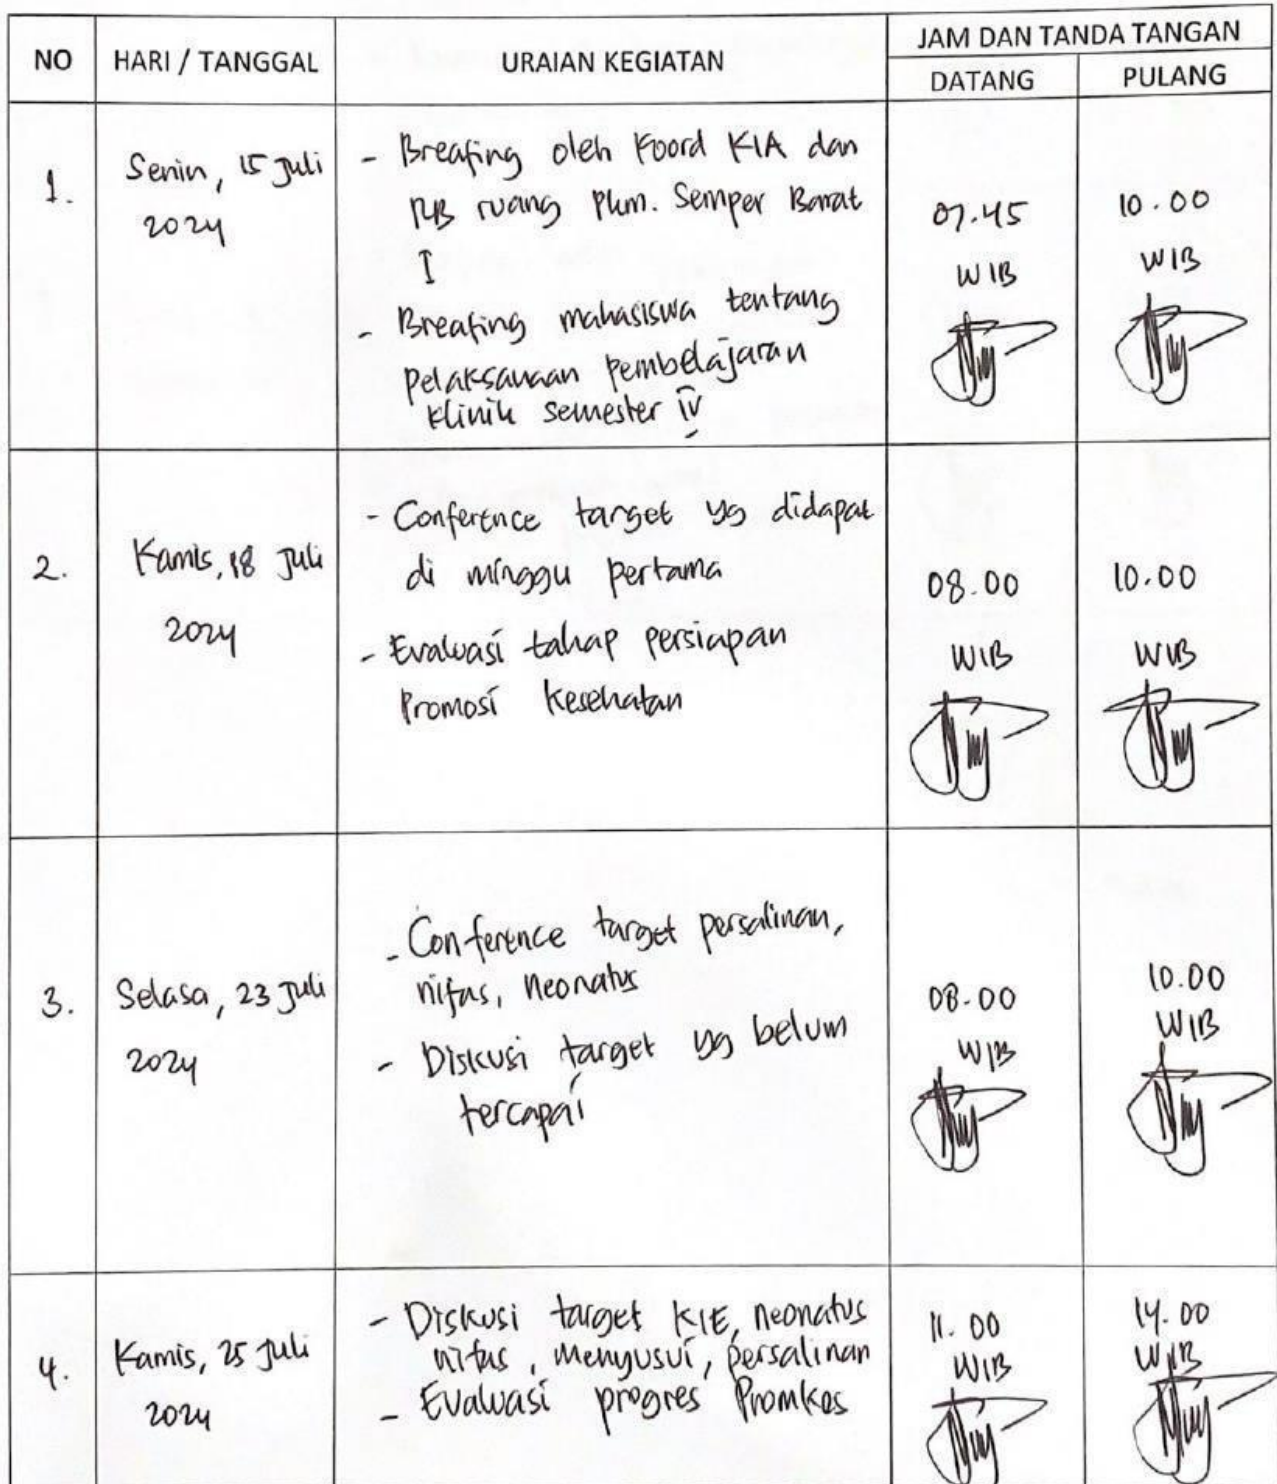 NO
HARI / TANGGAL
URAIAN KEGIATAN
JAM DAN TANDA TANGAN
DATANG
PULANG
1.
Senin, 15 Juli
2024
- Breafing oleh Koord KIA dan
RB ruang Pkm. Semper Barat
I
- Breafing mahasiswa tentang
pelaksanaan pembelajaran
klinik semester IV
07.45
WIB
10.00
WIB
2.
Kamis, 18 Juli
2024
- Conference target yg didapat
di minggu pertama
- Evaluasi tahap persiapan
Promosi Kesehatan
08.00
WIB
10.00
WIB
3.
Selasa, 23 Juli
2024
- Conference target persalinan,
nifas, neonatus
- Diskusi target yg belum
tercapai
08.00
WIB
10.00
WIB
4.
Kamis, 25 Juli
2024
- Diskusi target KIE, neonatus
nifas, menyusui, persalinan
- Evaluasi progres Promkes
11.00
WIB
14.00
WIB